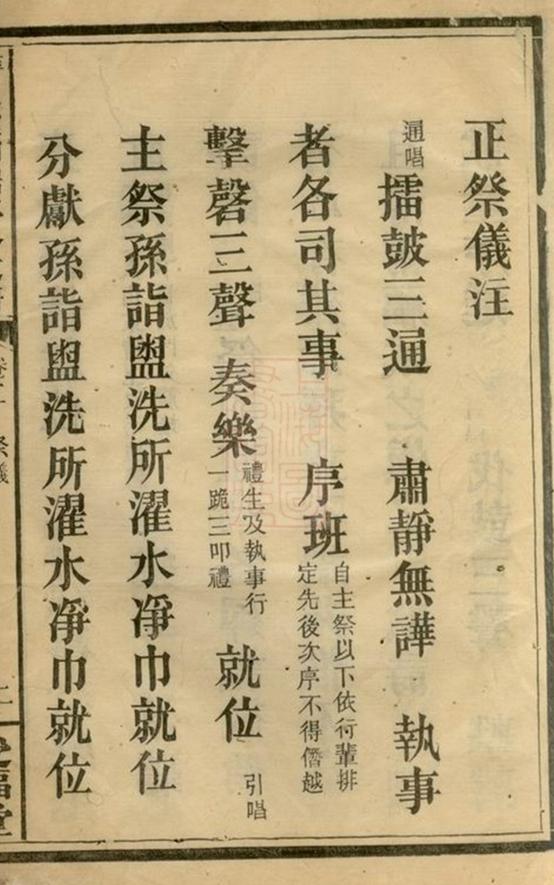 正祭儀注
通唱 擂鼓三通 肅靜無譁 執事
者各司其事 序班 自主祭以下依行輩排定先後次序不得僭越
擊磬三聲 奏樂 禮生及執事行一跪三叩禮 就位 引唱
主祭孫詣盥洗所濯水凈巾就位
分獻孫詣盥洗所濯水凈巾就位
祭儀